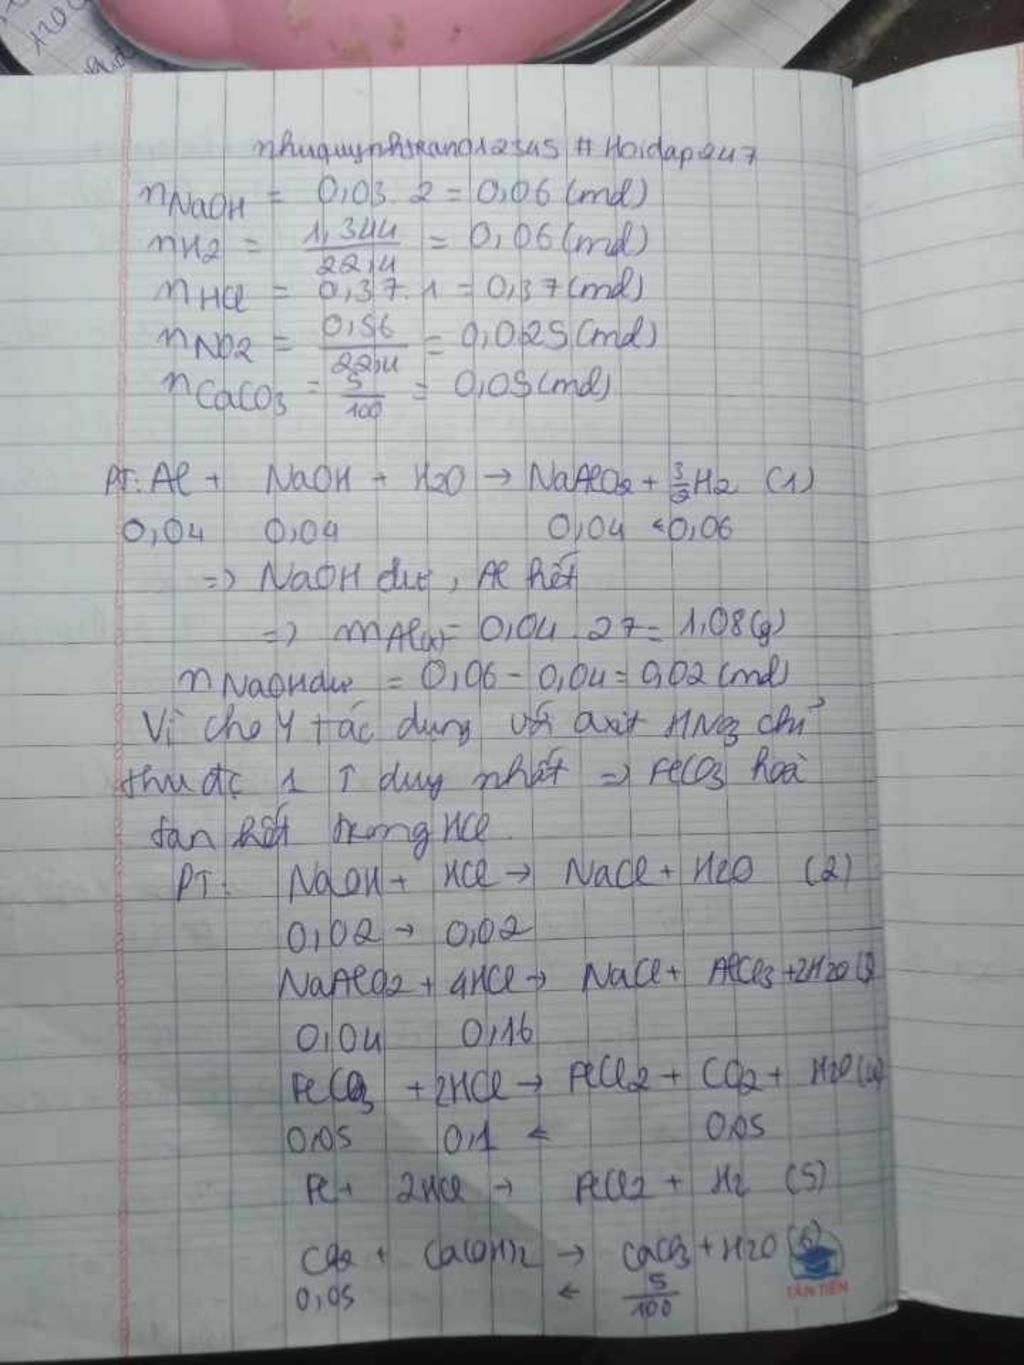 nhuquynhtrang12345 # Hoidap247
nNaOH = 0,03. 2 = 0,06 (mol)
nH2 = 1,344/22,4 = 0,06 (mol)
nHCl = 0,37. 1 = 0,37 (mol)
nNO2 = 0,56/22,4 = 0,025 (mol)
nCaCO3 = 5/100 = 0,05 (mol)
PT: Al + NaOH + H2O → NaAlO2 + 3/2 H2 (1)
0,04 0,04 0,04 <0,06
=) NaOH dư, Al hết
=) mAl(x) = 0,04. 27 = 1,08 (g)
nNaOH dư = 0,06 - 0,04 = 0,02 (mol)
Vì cho Y tác dụng với axit HNO3 chỉ
thu đc 1 ↑ duy nhất =) FeCO3 hoà
tan hết trong HCl
PT: NaOH + HCl → NaCl + H2O (2)
0,02 → 0,02
NaAlO2 + 4HCl → NaCl + AlCl3 + 2H2O (3)
0,04 0,16
FeCO3 + 2HCl → FeCl2 + CO2 + H2O (4)
0,05 0,1 ← 0,05
Fe + 2HCl → FeCl2 + H2 (5)
CO2 + Ca(OH)2 → CaCO3 + H2O (6)
0,05 ← 5/100
TÂN TIẾN